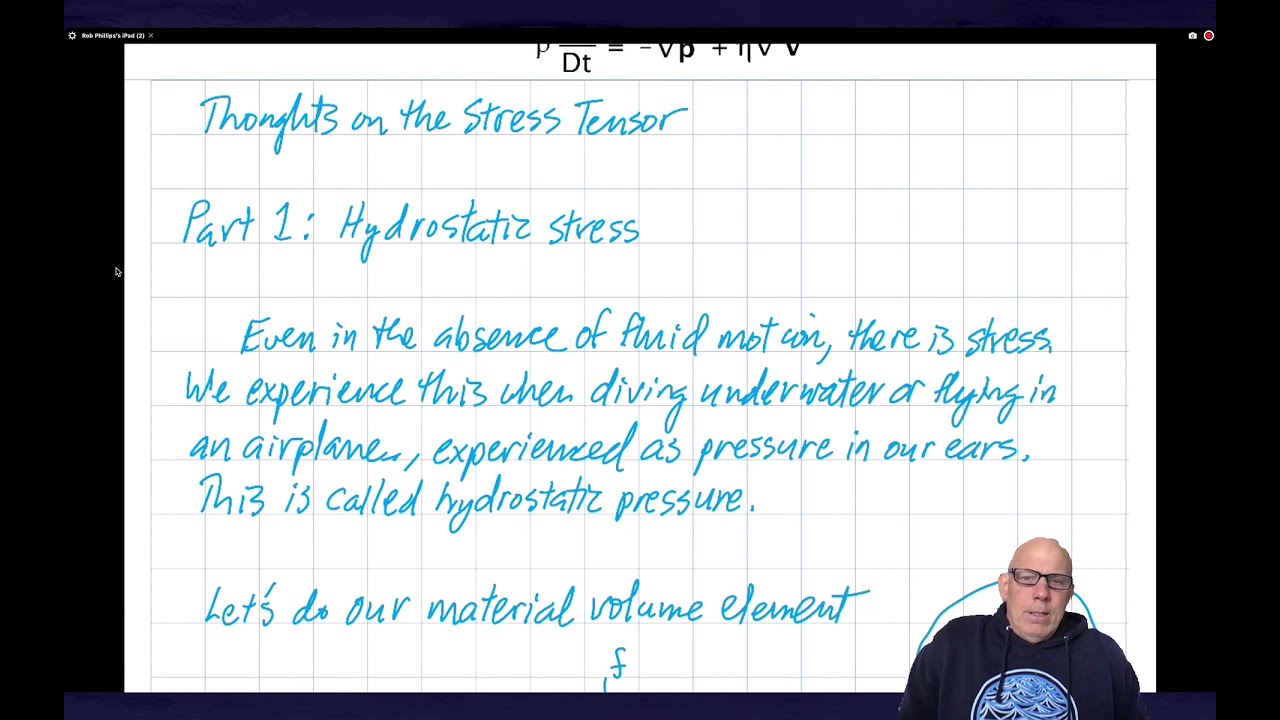 Rob Phillips's iPad (2)
Dt = -∇p + η∇ v
Thoughts on the Stress Tensor
Part 1: Hydrostatic stress
Even in the absence of fluid motion, there is stress.
We experience this when diving underwater or flying in
an airplane, experienced as pressure in our ears.
This is called hydrostatic pressure.
Let's do our material volume element
f